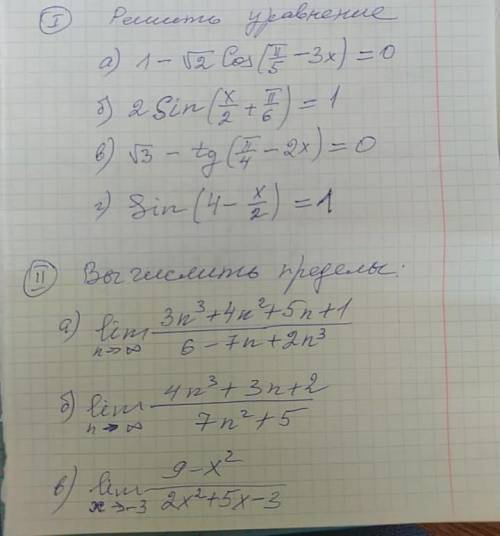 I Решить уравнение
а) 1 - √2 Cos(π/5 - 3x) = 0
б) 2 Sin(x/2 + π/6) = 1
в) √3 - tg(π/4 - 2x) = 0
г) Sin(4 - x/2) = 1
II Вычислить пределы:
а) lim n→∞ (3n³+4n²+5n+1)/(6-7n+2n³)
б) lim n→∞ (4n³+3n+2)/(7n²+5)
в) lim x→-3 (9-x²)/(2x²+5x-3)